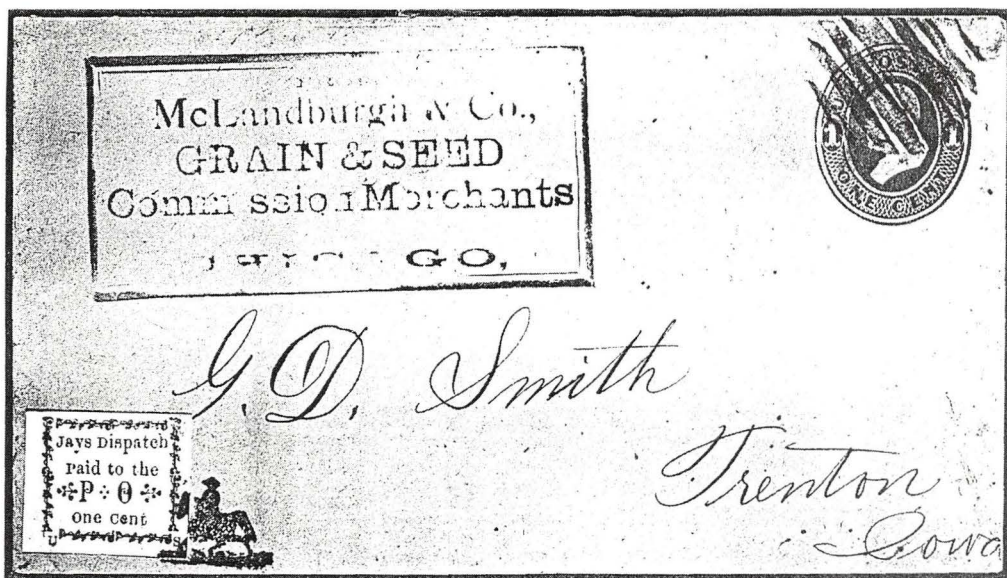 McLandburgh & Co.,
GRAIN & SEED
Commission Merchants
GO,
1 1
ONE CENT
G. D. Smith
Trenton
Iowa
Jays Dispatch
Paid to the
P O
One Cent